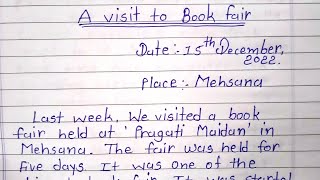 A visit to Book fair
Date:- 15th December,
2022.
Place:- Mehsana
Last week, We visited a book
fair held at 'Pragati Maidan' in
Mehsana. The fair was held for
Five days. It was one of the
fair. It was